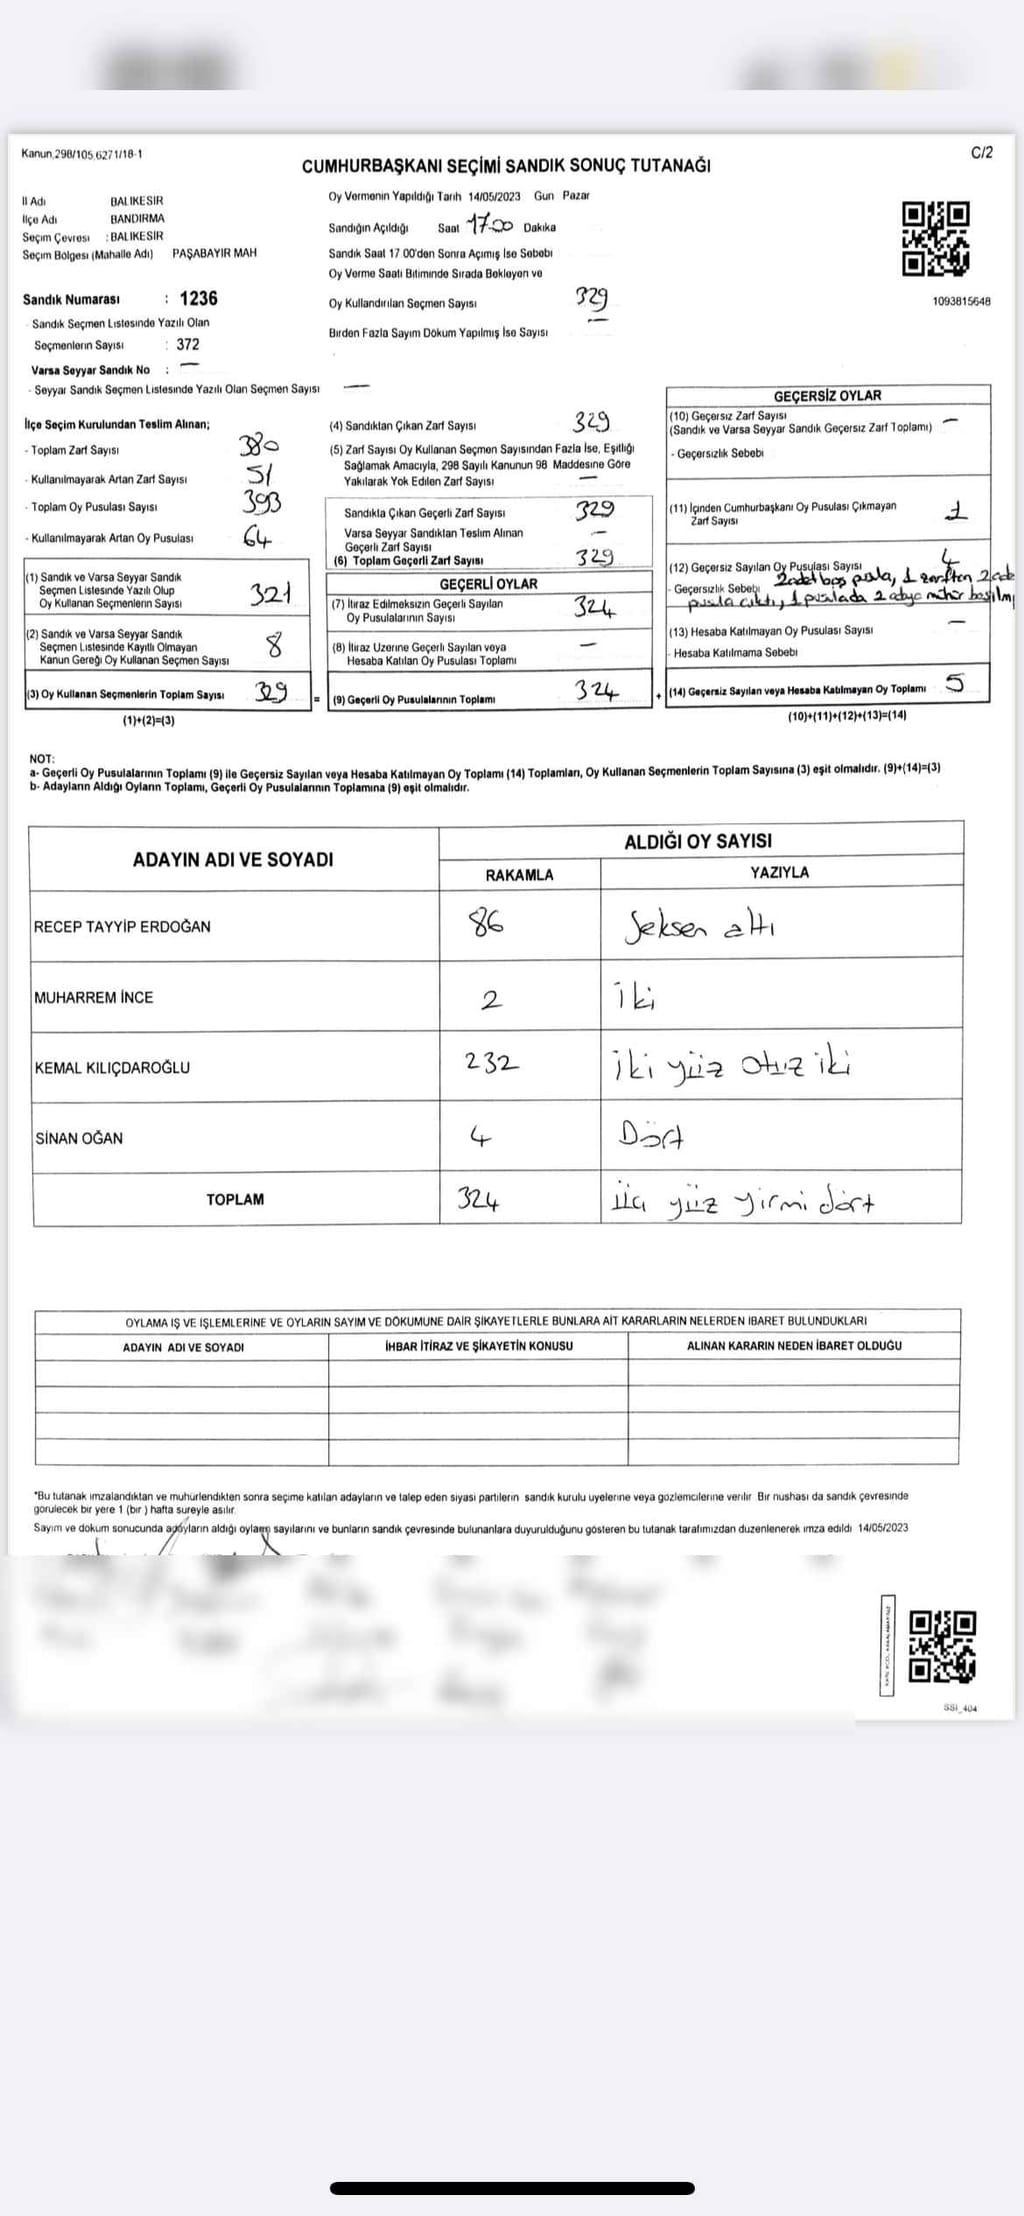 Kanun,298/105,6271/18-1
C/2
CUMHURBAŞKANI SEÇİMİ SANDIK SONUÇ TUTANAĞI
İl Adı BALIKESİR
İlçe Adı BANDIRMA
Seçim Çevresi : BALIKESİR
Seçim Bölgesi (Mahalle Adı) PAŞABAYIR MAH
Sandık Numarası : 1236
- Sandık Seçmen Listesinde Yazılı Olan
Seçmenlerin Sayısı : 372
Varsa Seyyar Sandık No : —
- Seyyar Sandık Seçmen Listesinde Yazılı Olan Seçmen Sayısı —
Oy Vermenin Yapıldığı Tarih 14/05/2023 Gün Pazar
Sandığın Açıldığı Saat 17:00 Dakika
Sandık Saat 17 00'den Sonra Açımış İse Sebebi
Oy Verme Saati Bitiminde Sırada Bekleyen ve
Oy Kullandırılan Seçmen Sayısı 329
—
Birden Fazla Sayım Döküm Yapılmış İse Sayısı
1093815648
İlçe Seçim Kurulundan Teslim Alınan;
- Toplam Zarf Sayısı 380
- Kullanılmayarak Artan Zarf Sayısı 51
- Toplam Oy Pusulası Sayısı 393
- Kullanılmayarak Artan Oy Pusulası 64
(1) Sandık ve Varsa Seyyar Sandık
Seçmen Listesinde Yazılı Olup
Oy Kullanan Seçmenlerin Sayısı 321
(2) Sandık ve Varsa Seyyar Sandık
Seçmen Listesinde Kayıtlı Olmayan
Kanun Gereği Oy Kullanan Seçmen Sayısı 8
(3) Oy Kullanan Seçmenlerin Toplam Sayısı 329 =
(1)+(2)=(3)
(4) Sandıktan Çıkan Zarf Sayısı 329
(5) Zarf Sayısı Oy Kullanan Seçmen Sayısından Fazla İse, Eşitliği
Sağlamak Amacıyla, 298 Sayılı Kanunun 98 Maddesine Göre
Yakılarak Yok Edilen Zarf Sayısı —
Sandıkla Çıkan Geçerli Zarf Sayısı 329
Varsa Seyyar Sandıktan Teslim Alınan
Geçerli Zarf Sayısı —
(6) Toplam Geçerli Zarf Sayısı 329
GEÇERLİ OYLAR
(7) İtiraz Edilmeksizin Geçerli Sayılan
Oy Pusulalarının Sayısı 324
(8) İtiraz Üzerine Geçerli Sayılan veya
Hesaba Katılan Oy Pusulası Toplamı —
(9) Geçerli Oy Pusulalarının Toplamı 324 +
GEÇERSİZ OYLAR
(10) Geçersiz Zarf Sayısı
(Sandık ve Varsa Seyyar Sandık Geçersiz Zarf Toplamı) —
- Geçersizlik Sebebi
(11) İçinden Cumhurbaşkanı Oy Pusulası Çıkmayan
Zarf Sayısı 1
(12) Geçersiz Sayılan Oy Pusulası Sayısı 4
- Geçersizlik Sebebi 2 adet boş pusla, 1 zarftan 2 ade
pusla çıktı, 1 puslada 2 adya mühür basılmı
(13) Hesaba Katılmayan Oy Pusulası Sayısı —
- Hesaba Katılmama Sebebi
(14) Geçersiz Sayılan veya Hesaba Katılmayan Oy Toplamı 5
(10)+(11)+(12)+(13)=(14)
NOT:
a- Geçerli Oy Pusulalarının Toplamı (9) ile Geçersiz Sayılan veya Hesaba Katılmayan Oy Toplamı (14) Toplamları, Oy Kullanan Seçmenlerin Toplam Sayısına (3) eşit olmalıdır. (9)+(14)=(3)
b- Adayların Aldığı Oyların Toplamı, Geçerli Oy Pusulalarının Toplamına (9) eşit olmalıdır.
ADAYIN ADI VE SOYADI
ALDIĞI OY SAYISI
RAKAMLA YAZIYLA
RECEP TAYYİP ERDOĞAN 86 Seksen altı
MUHARREM İNCE 2 İki
KEMAL KILIÇDAROĞLU 232 İki yüz otuz iki
SİNAN OĞAN 4 Dört
TOPLAM 324 üç yüz yirmi dört
OYLAMA İŞ VE İŞLEMLERİNE VE OYLARIN SAYIM VE DÖKÜMÜNE DAİR ŞİKAYETLERLE BUNLARA AİT KARARLARIN NELERDEN İBARET BULUNDUKLARI
ADAYIN ADI VE SOYADI İHBAR İTİRAZ VE ŞİKAYETİN KONUSU ALINAN KARARIN NEDEN İBARET OLDUĞU
*Bu tutanak imzalandıktan ve mühürlendikten sonra seçime katılan adayların ve talep eden siyasi partilerin sandık kurulu üyelerine veya gözlemcilerine verilir Bir nushası da sandık çevresinde
görülecek bir yere 1 (bir ) hafta süreyle asılır.
Sayım ve dökum sonucunda adayların aldığı oyların sayılarını ve bunların sandık çevresinde bulunanlara duyurulduğunu gösteren bu tutanak tarafımızdan düzenlenerek imza edildi 14/05/2023
SSI_404